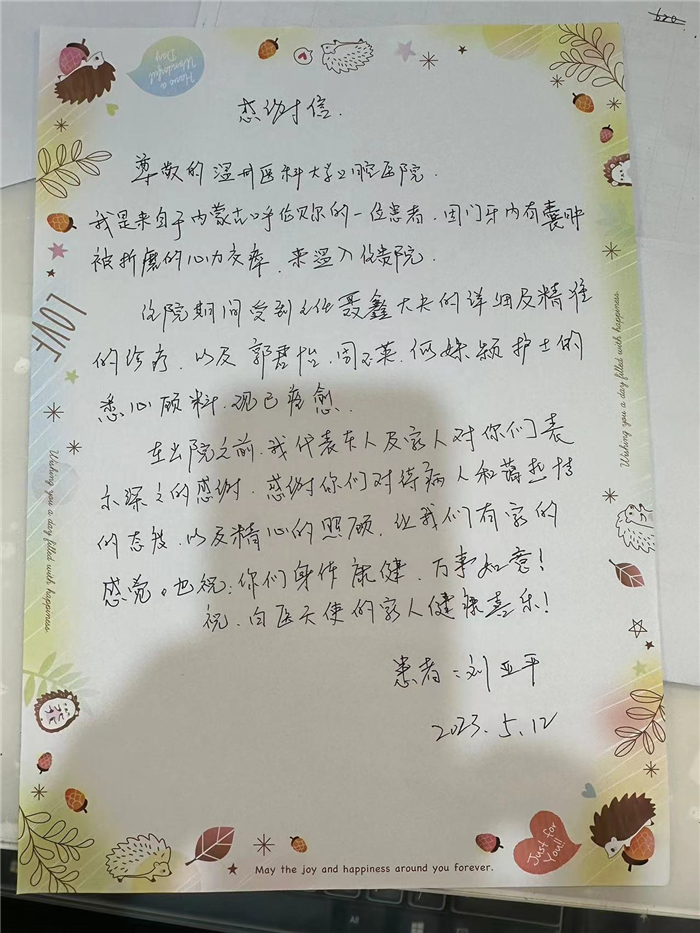 620
Have a
Wonderful
Day
感谢信.
尊敬的温州医科大学口腔医院.
我是来自于内蒙古呼伦贝尔的一位患者、因门牙内有囊肿
被折磨的心力交瘁、来温入住贵院.
住院期间受到 聂鑫大夫的详细及精准
的诊疗、以及郭君怡、周 英、何姝颖护士的
悉心顾料.现已痊愈.
在出院之前、我代表本人及家人对你们表
示深深的感谢、感谢你们对待病人和蔼热情
的态度、以及精心的照顾、让我们有家的
感觉。也祝:你们身体康健、万事如意!
祝、白医天使的家人健康喜乐!
患者:刘亚平
2023.5.12
LOVE
Wishing you a day filled with happiness.
Wishing you a day filled with happiness.
Just for
You!!
May the joy and happiness around you forever.